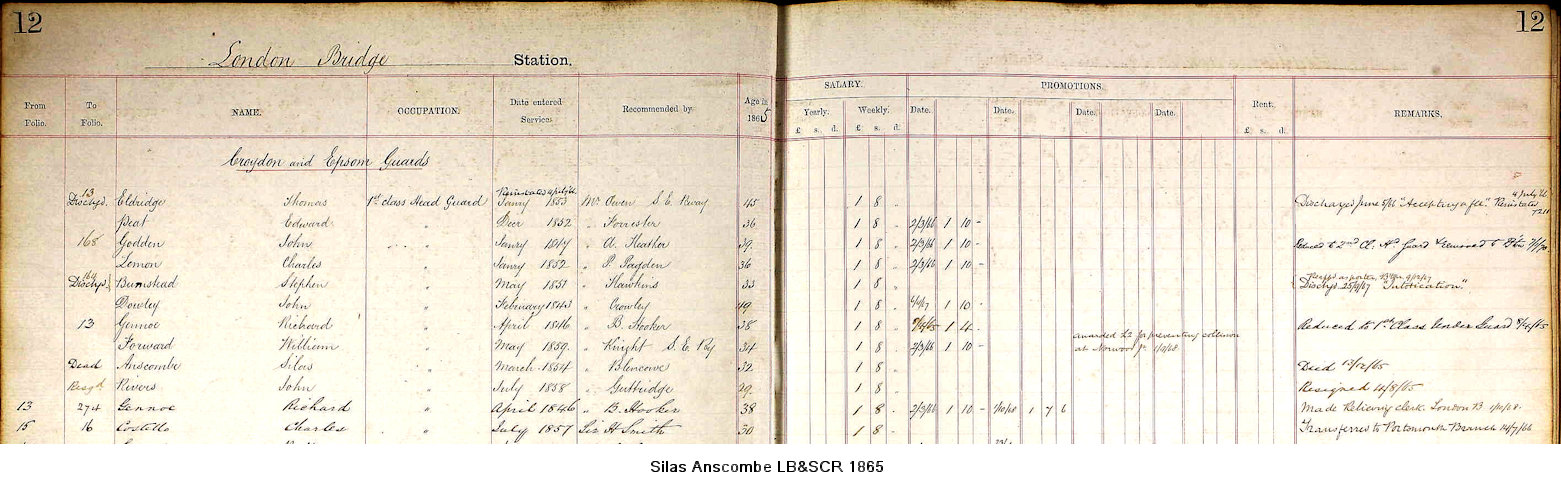 12 12
London Bridge Station.
From Folio. To Folio. NAME. OCCUPATION. Date entered Service. Recommended by Age in 1865 SALARY. Yearly. £ s. d. Weekly. £ s. d. PROMOTIONS. Date. Date. Date. Date. Rent. £ s. d. REMARKS.
Croydon and Epsom Guards
13 4 July/66
Dischgd. Eldridge Thomas 1st class Head Guard Janry 1853 Mr Owen S. E. Rway 45 1 8 " Discharged June 5/66 "Accepting a fee"
Peat Edward " Decr 1852 " Forrester 36 1 8 " 2/3/66 1 10 -
168 Godden John " Janry 1847 " A. Heather 39 1 8 " 2/3/66 1 10 - 2nd Cl. Hd Guard
Lemon Charles " Janry 1852 " P. Payden 36 1 8 " 2/3/66 1 10 -
164
Dischgd Bumstead Stephen " May 1851 " Hawkins 33 1 8 " Dischgd "Intoxication"
Dowley John " February 1843 " Crowley 49 1 8 " 1 10 -
13 Gennoe Richard " April 1846 " B. Hooker 38 1 8 " 1 4 - Reduced to 1st Class Under Guard 8/4/65
awarded £2 for preventing collision
Forward William " May 1859 " Knight S. E. Ry 34 1 8 " 2/3/66 1 10 - at Norwood Jn
Dead Anscombe Silas " March 1854 " Blencowe 32 1 8 " Died 13/12/65
Resgd Rivers John " July 1858 " Guttridge 29 1 8 " Resigned 14/8/65
13 274 Gennoe Richard " April 1846 " B. Hooker 38 1 8 - 2/3/66 1 10 - 1 7 6 Made Relieving clerk. London B 1/10/68
15 16 Costello Charles " July 1857 Sir H Smith 30 1 8 - Transferred to Portsmouth Branch 14/7/66
Silas Anscombe LB&SCR 1865